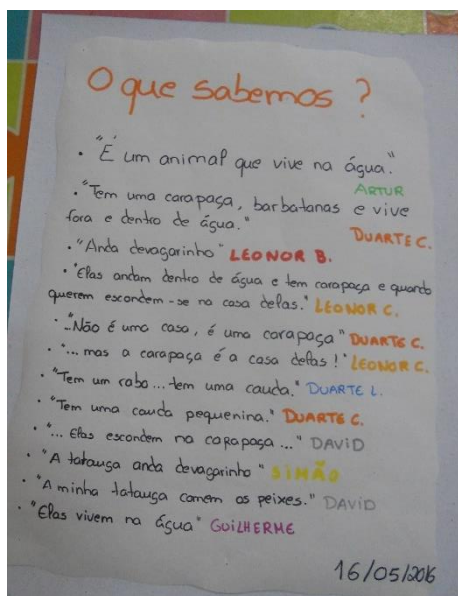 O que sabemos ?
• "É um animal que vive na água."
ARTUR
• "Tem uma carapaça, barbatanas e vive
fora e dentro de água."
DUARTE C.
• "Anda devagarinho" LEONOR B.
• "Elas andam dentro de água e tem carapaça e quando
querem escondem-se na casa delas." LEONOR C.
• "...Não é uma casa, é uma carapaça" DUARTE C.
• "... mas a carapaça é a casa delas !" LEONOR C.
• "Tem um rabo... tem uma cauda." DUARTE L.
• "Tem uma cauda pequenina." DUARTE C.
• "... Elas escondem na carapaça ..." DAVID
• "A tatauga anda devagarinho" SIMÃO
• "A minha tatauga comem os peixes." DAVID
• "Elas vivem na água" GUILHERME
16/05/2016